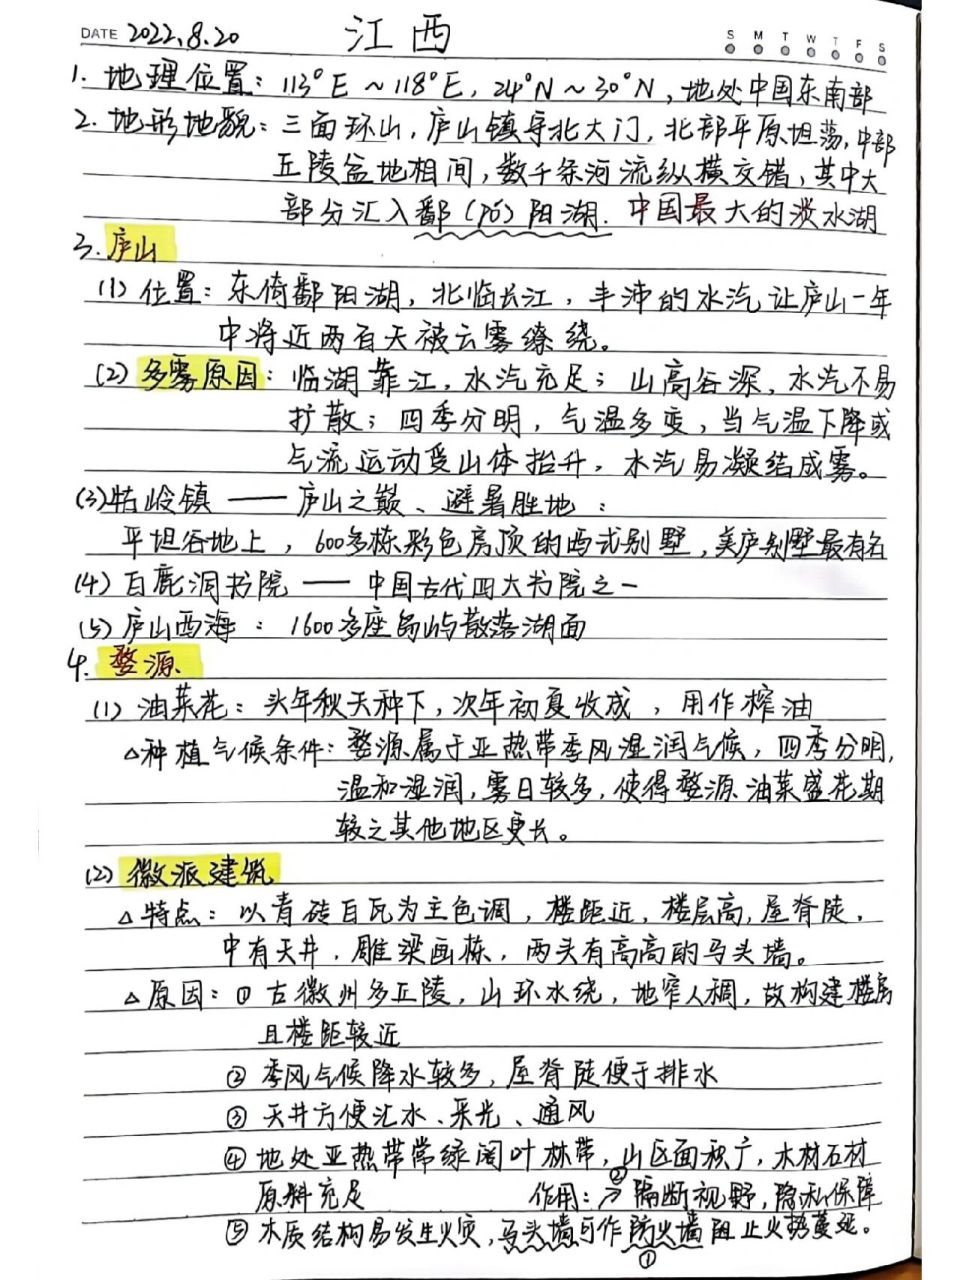 DATE 2022.8.20 江西 S M T W T F S
1. 地理位置：113°E ~118°E，24°N ~30°N，地处中国东南部
2. 地形地貌：三面环山，庐山镇守北大门，北部平原坦荡，中部
丘陵盆地相间，数千条河流纵横交错，其中大
部分汇入鄱(pó)阳湖. 中国最大的淡水湖
3. 庐山
(1) 位置：东倚鄱阳湖，北临长江，丰沛的水汽让庐山一年
中将近两百天被云雾缭绕。
(2) 多雾原因：临湖靠江，水汽充足；山高谷深，水汽不易
扩散；四季分明，气温多变，当气温下降或
气流运动受山体抬升，水汽易凝结成雾。
(3) 牯岭镇 —— 庐山之巅、避暑胜地：
平坦谷地上，600多栋彩色房顶的西式别墅，美庐别墅最有名
(4) 白鹿洞书院 —— 中国古代四大书院之一
(5) 庐山西海：1600多座岛屿散落湖面
4. 婺源
(1) 油菜花：头年秋天种下，次年初夏收成，用作榨油
△种植气候条件：婺源属于亚热带季风湿润气候，四季分明，
温和湿润，雾日较多，使得婺源油菜盛花期
较之其他地区更长。
(2) 徽派建筑
△特点：以青砖白瓦为主色调，楼距近，楼层高，屋脊陡，
中有天井，雕梁画栋，两头有高高的马头墙。
△原因：① 古徽州多丘陵，山环水绕，地窄人稠，故构建楼房
且楼距较近
② 季风气候降水较多，屋脊陡便于排水
③ 天井方便汇水、采光、通风
④ 地处亚热带常绿阔叶林带，山区面积广，木材石材
原料充足 作用：②→ 隔断视野，隐私保障
⑤ 木质结构易发生火灾，马头墙可作防火墙阻止火势蔓延。
①